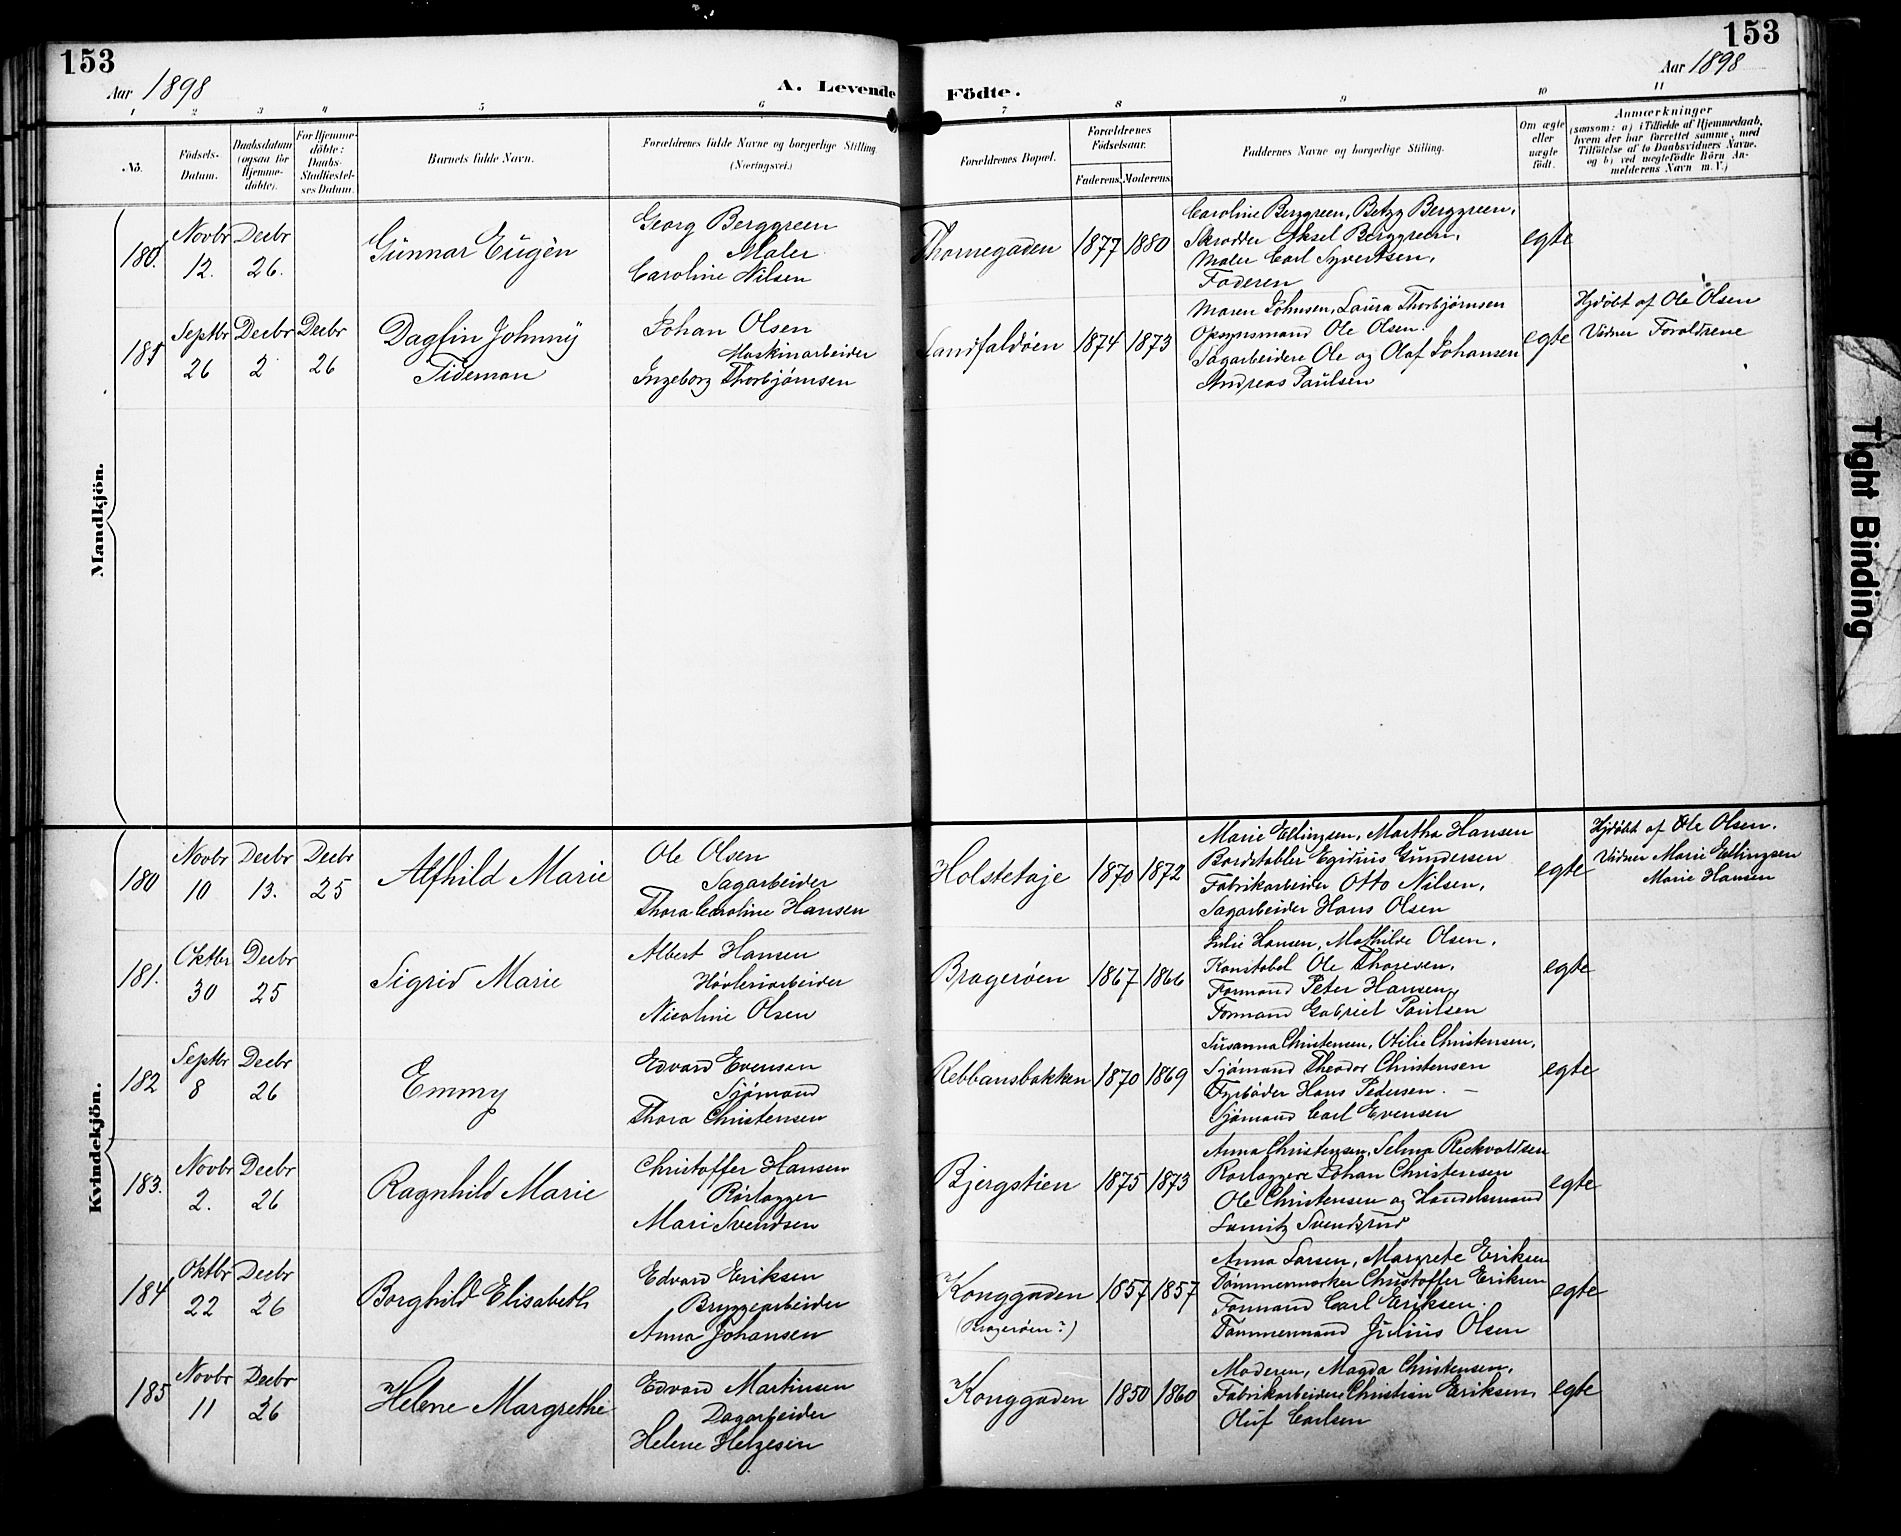 153
153
Aar 1898
A. Levende
Födte.
Aar 1898
1 2 3 4 5 6 7 8 9 10 11
No.
Födsels-Datum.
Daabsdatum (ogsaa for Hjemme-döbte).
For Hjemme-döbte: Daabs-Stadfæstel-ses Datum.
Barnets fulde Navn.
Forældrenes fulde Navne og borgerlige Stilling (Næringsvei.)
Forældrenes Bopæl.
Forældrenes Födselsaar.
Faderens. Moderens.
Faddernes Navne og borgerlige Stilling.
Om ægte eller uægte födt.
Anmærkninger
(saasom: a) i Tilfælde af Hjemmedaab, hvem der har forrettet samme, med Tilföielse af to Daabsvidners Navne, og b) ved uægtefödte Börn Anmelderens Navn m. V.)
Mandkjön.
180. Novbr 12. Decbr 26. Gunnar Eugèn
Georg Berggreen
Maler
Caroline Nilsen
Thornegaden 1877 1880
Caroline Berggreen, Betzy Berggreen,
Skrædder Aksel Berggreen,
Maler Carl Syvertsen,
Faderen
egte
181 Septbr 26 Decbr 2 Decbr 26 Dagfin Johnny
Tideman
Johan Olsen
Maskinarbeider
Ingeborg Thorbjørnsen
Landfaldøen 1874 1873
Maren Johnsen, Laura Thorbjørnsen
Opsynsmand Ole Olsen.
Sagarbeidere Ole og Olaf Johansen
Andreas Paulsen
egte
Hjdöbt af Ole Olsen
Vidner Forældrene
Kvindekjön.
180 Novbr 10 Decbr 13. Decbr 25 Alfhild Marie
Ole Olsen
Sagarbeider
Thora Caroline Hansen
Holstetøje 1870 1872
Marie Ellingsen, Martha Hansen
Bordstabler Egidius Gundersen
Fabrikarbeider Otto Nilsen,
Sagarbeider Hans Olsen
egte
Hjdöbt af Ole Olsen.
Vidner Marie Ellingsen
Marie Hansen
181. Oktbr 30 Decbr 25 Sigrid Marie
Albert Hansen
Høvleriarbeider
Nicoline Olsen
Bragerøen 1867 1866
Julie Hansen, Mathilde Olsen,
Konstabel Ole Thoresen,
Formand Peter Hansen,
Formand Gabriel Paulsen
egte
182 Septbr 8 Decbr 26 Emmy
Edvard Evensen
Sjømand
Thora Christensen
Rebbansbakken 1870 1869
Susanna Christensen, Otilie Christensen,
Sjømand Theodor Christensen
Fyrbøder Hans Pedersen. —
Sjømand Carl Evensen
egte
183. Novbr 2. Decbr 26 Ragnhild Marie
Christoffer Hansen
Rørlægger
Mari Svendsen
Bjergstien 1875 1873
Anna Christensen, Selma
Rørlæggere Johan Christensen
Ole Christensen og Handelsmand
Svendsrud
egte
184 Oktbr 22 Decbr 26 Borghild Elisabeth
Edvard Eriksen
Bryggearbeider
Anna Johansen
Konggaden 1857 1857
(Bragerøen?)
Anna Larsen, Margrete Eriksen
Tømmermærker Christoffer Eriksen
Formand Carl Eriksen.
Tømmermand Julius Olsen
egte
185 Novbr 11 Decbr 26 Helene Margrethe
Edvard Martinsen
Dagarbeider
Helene Helgesen
Konggaden 1850 1860
Moderen, Magda Christensen,
Fabrikarbeidere Christian Eriksen,
Oluf Carlsen
egte
Tight Binding